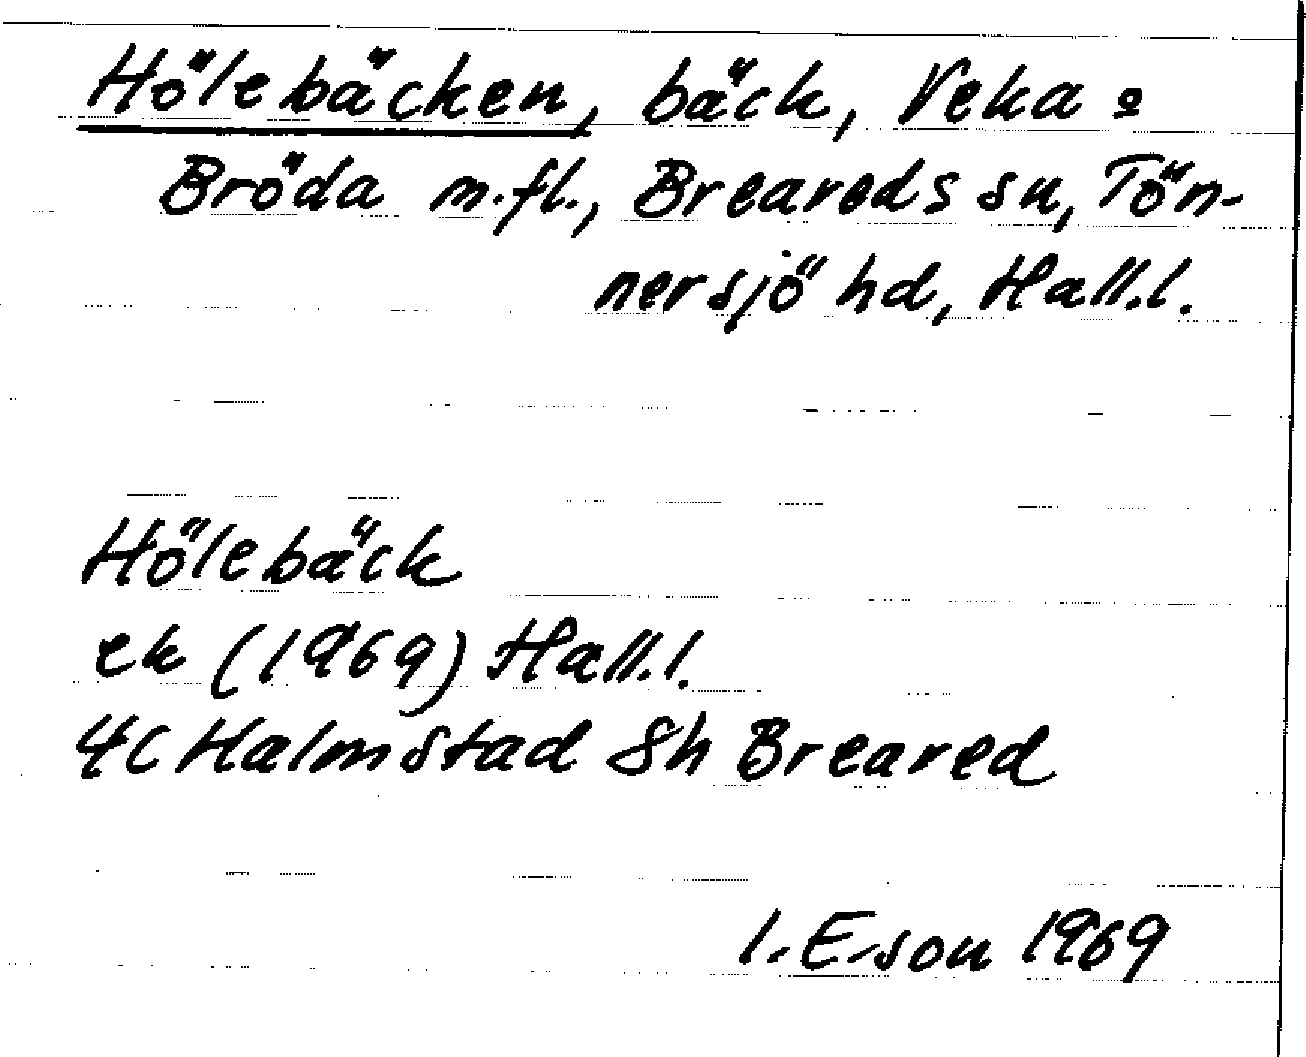 Hölebäcken, bäck, Veka o
Bröda m.fl., Breareds sn, Tön-
nersjö hd, Hall.l.
Hölebäck
ek (1969) Hall.l.
4C Halmstad Sh Breared
I. E-son 1969